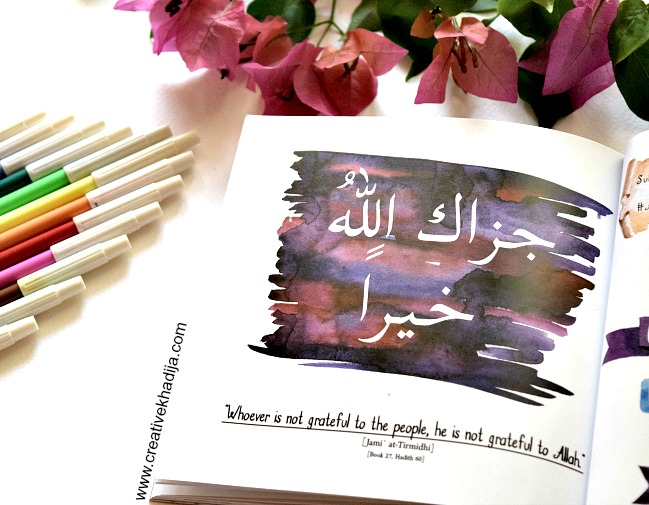 جزاكِ اللّٰهُ
خيرا
"Whoever is not grateful to the people, he is not grateful to Allah."
[Jami` at-Tirmidhi]
[Book 27, Hadith 60]
www.creativekhadija.com